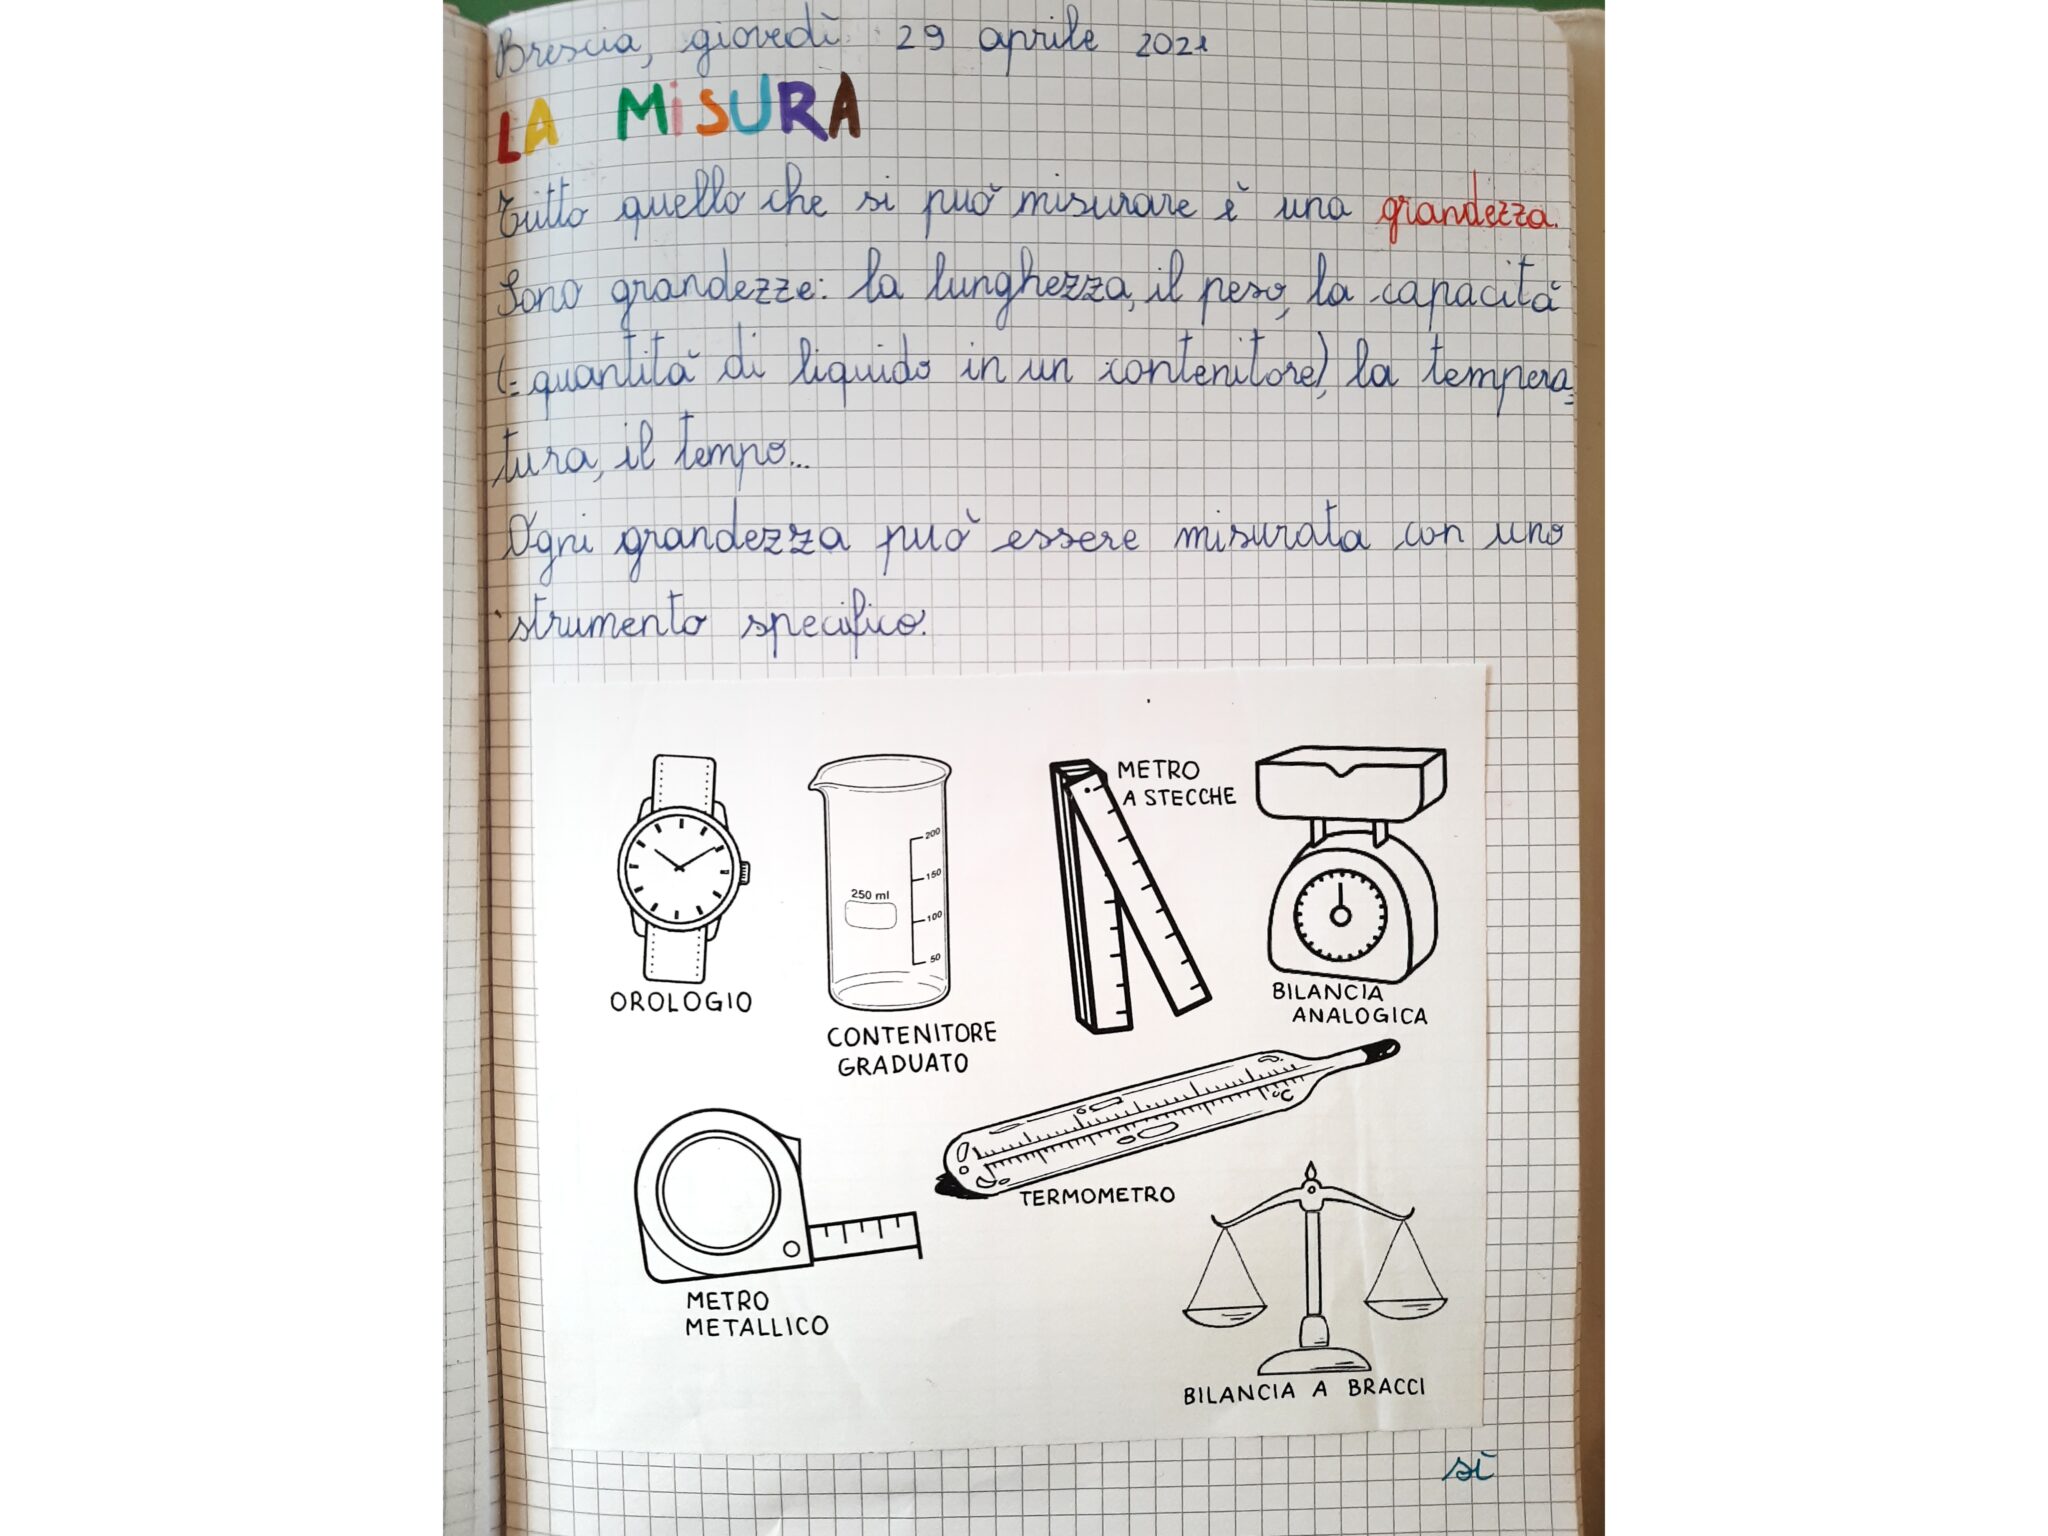 Brescia, giovedì 29 aprile 2021
LA MiSURA
Tutto quello che si può misurare è una grandezza.
Sono grandezze: la lunghezza, il peso, la capacità
(= quantità di liquido in un contenitore), la tempera=
tura, il tempo...
Ogni grandezza può essere misurata con uno
strumento specifico.
OROLOGIO
250 ml
200
150
100
50
CONTENITORE
GRADUATO
METRO
A STECCHE
BILANCIA
ANALOGICA
METRO
METALLICO
°C
TERMOMETRO
BILANCIA A BRACCI
sì